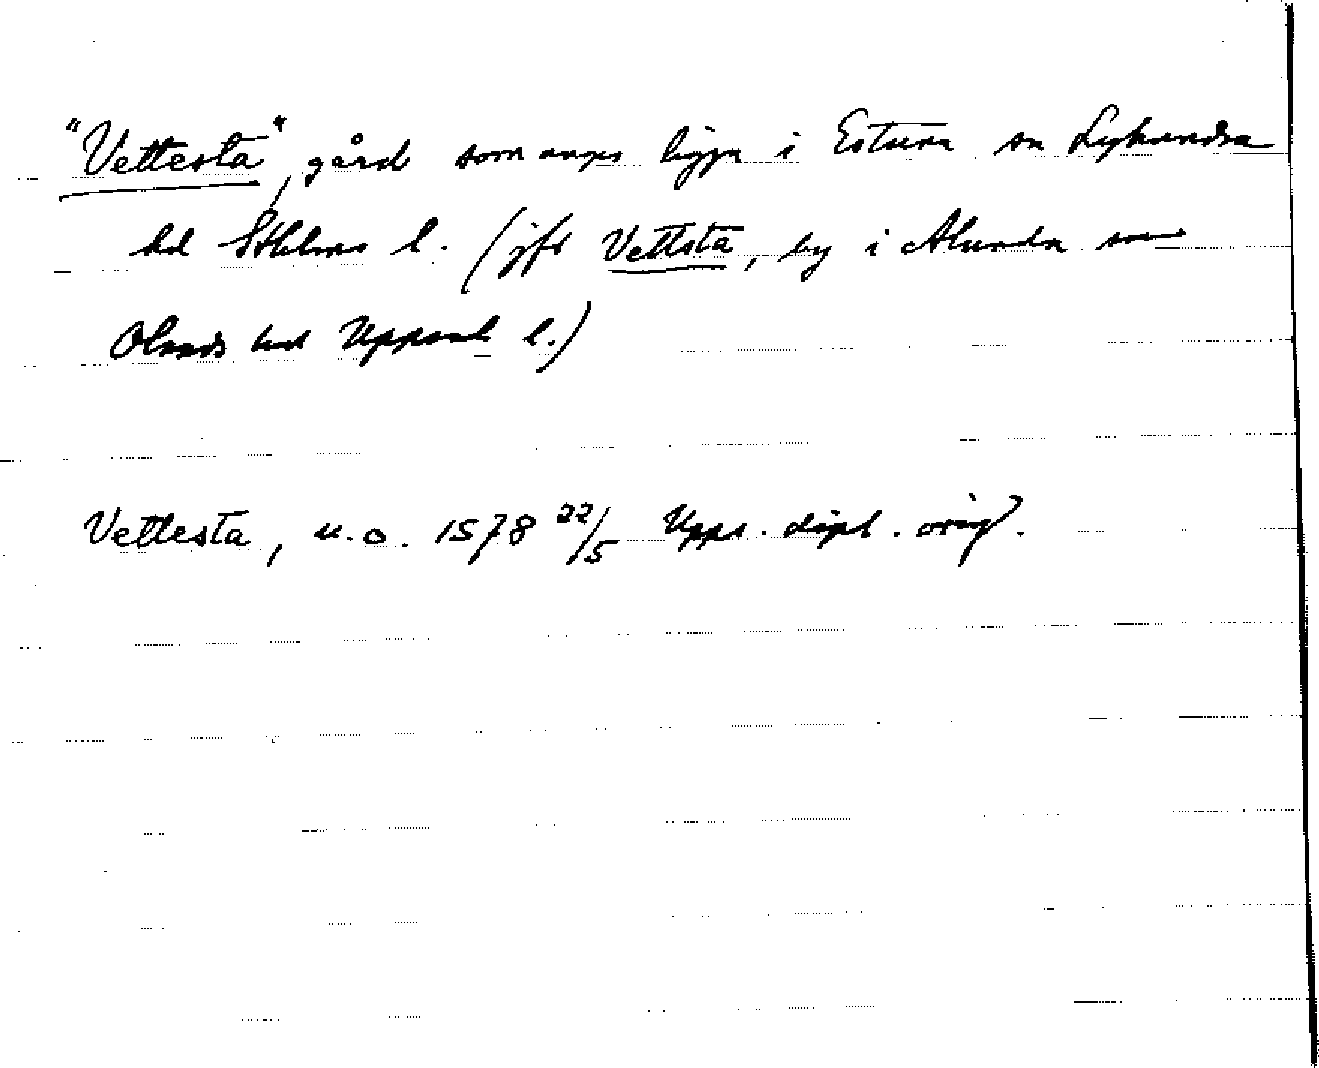 "Vettesta", gård som anges ligga i Estuna sn Lyhundra
hd Sthlms l. (jfr Vettsta, by i Alunda sn
Olands hd Uppsala l.)
Vettesta, u.o. 1578 22/5 Upps. dipl. orig.